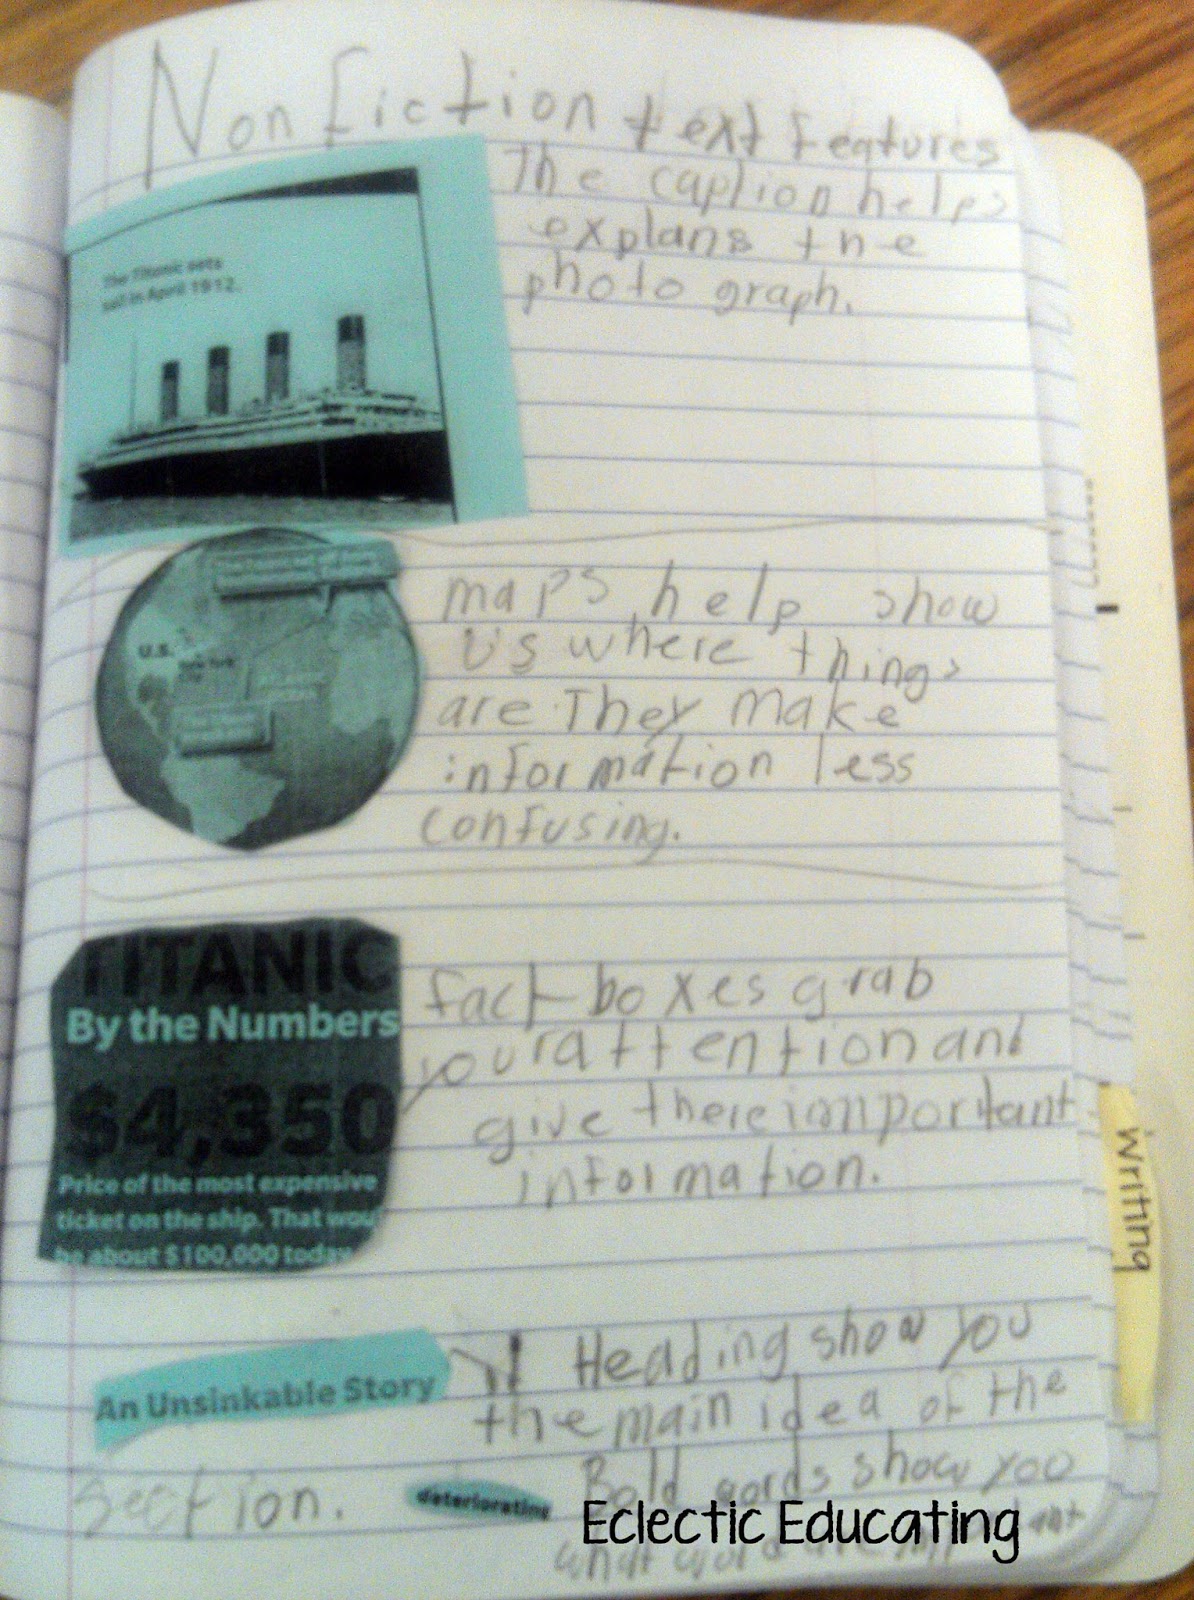 Non fiction text features
The Titanic sets
sail in April 1912.
The caption helps
explans the
photo graph.
U.S.
New York
City
maps help show
us where things
are. They make
information less
confusing.
TITANIC
By the Numbers
$4,350
Price of the most expensive
ticket on the ship. That wou
be about $100,000 today
fact boxes grab
your attention and
give there imporltant
information.
An Unsinkable Story
Heading show you
the main idea of the
section.
deteriorating
Bold words show you
what word are
Eclectic Educating
writing